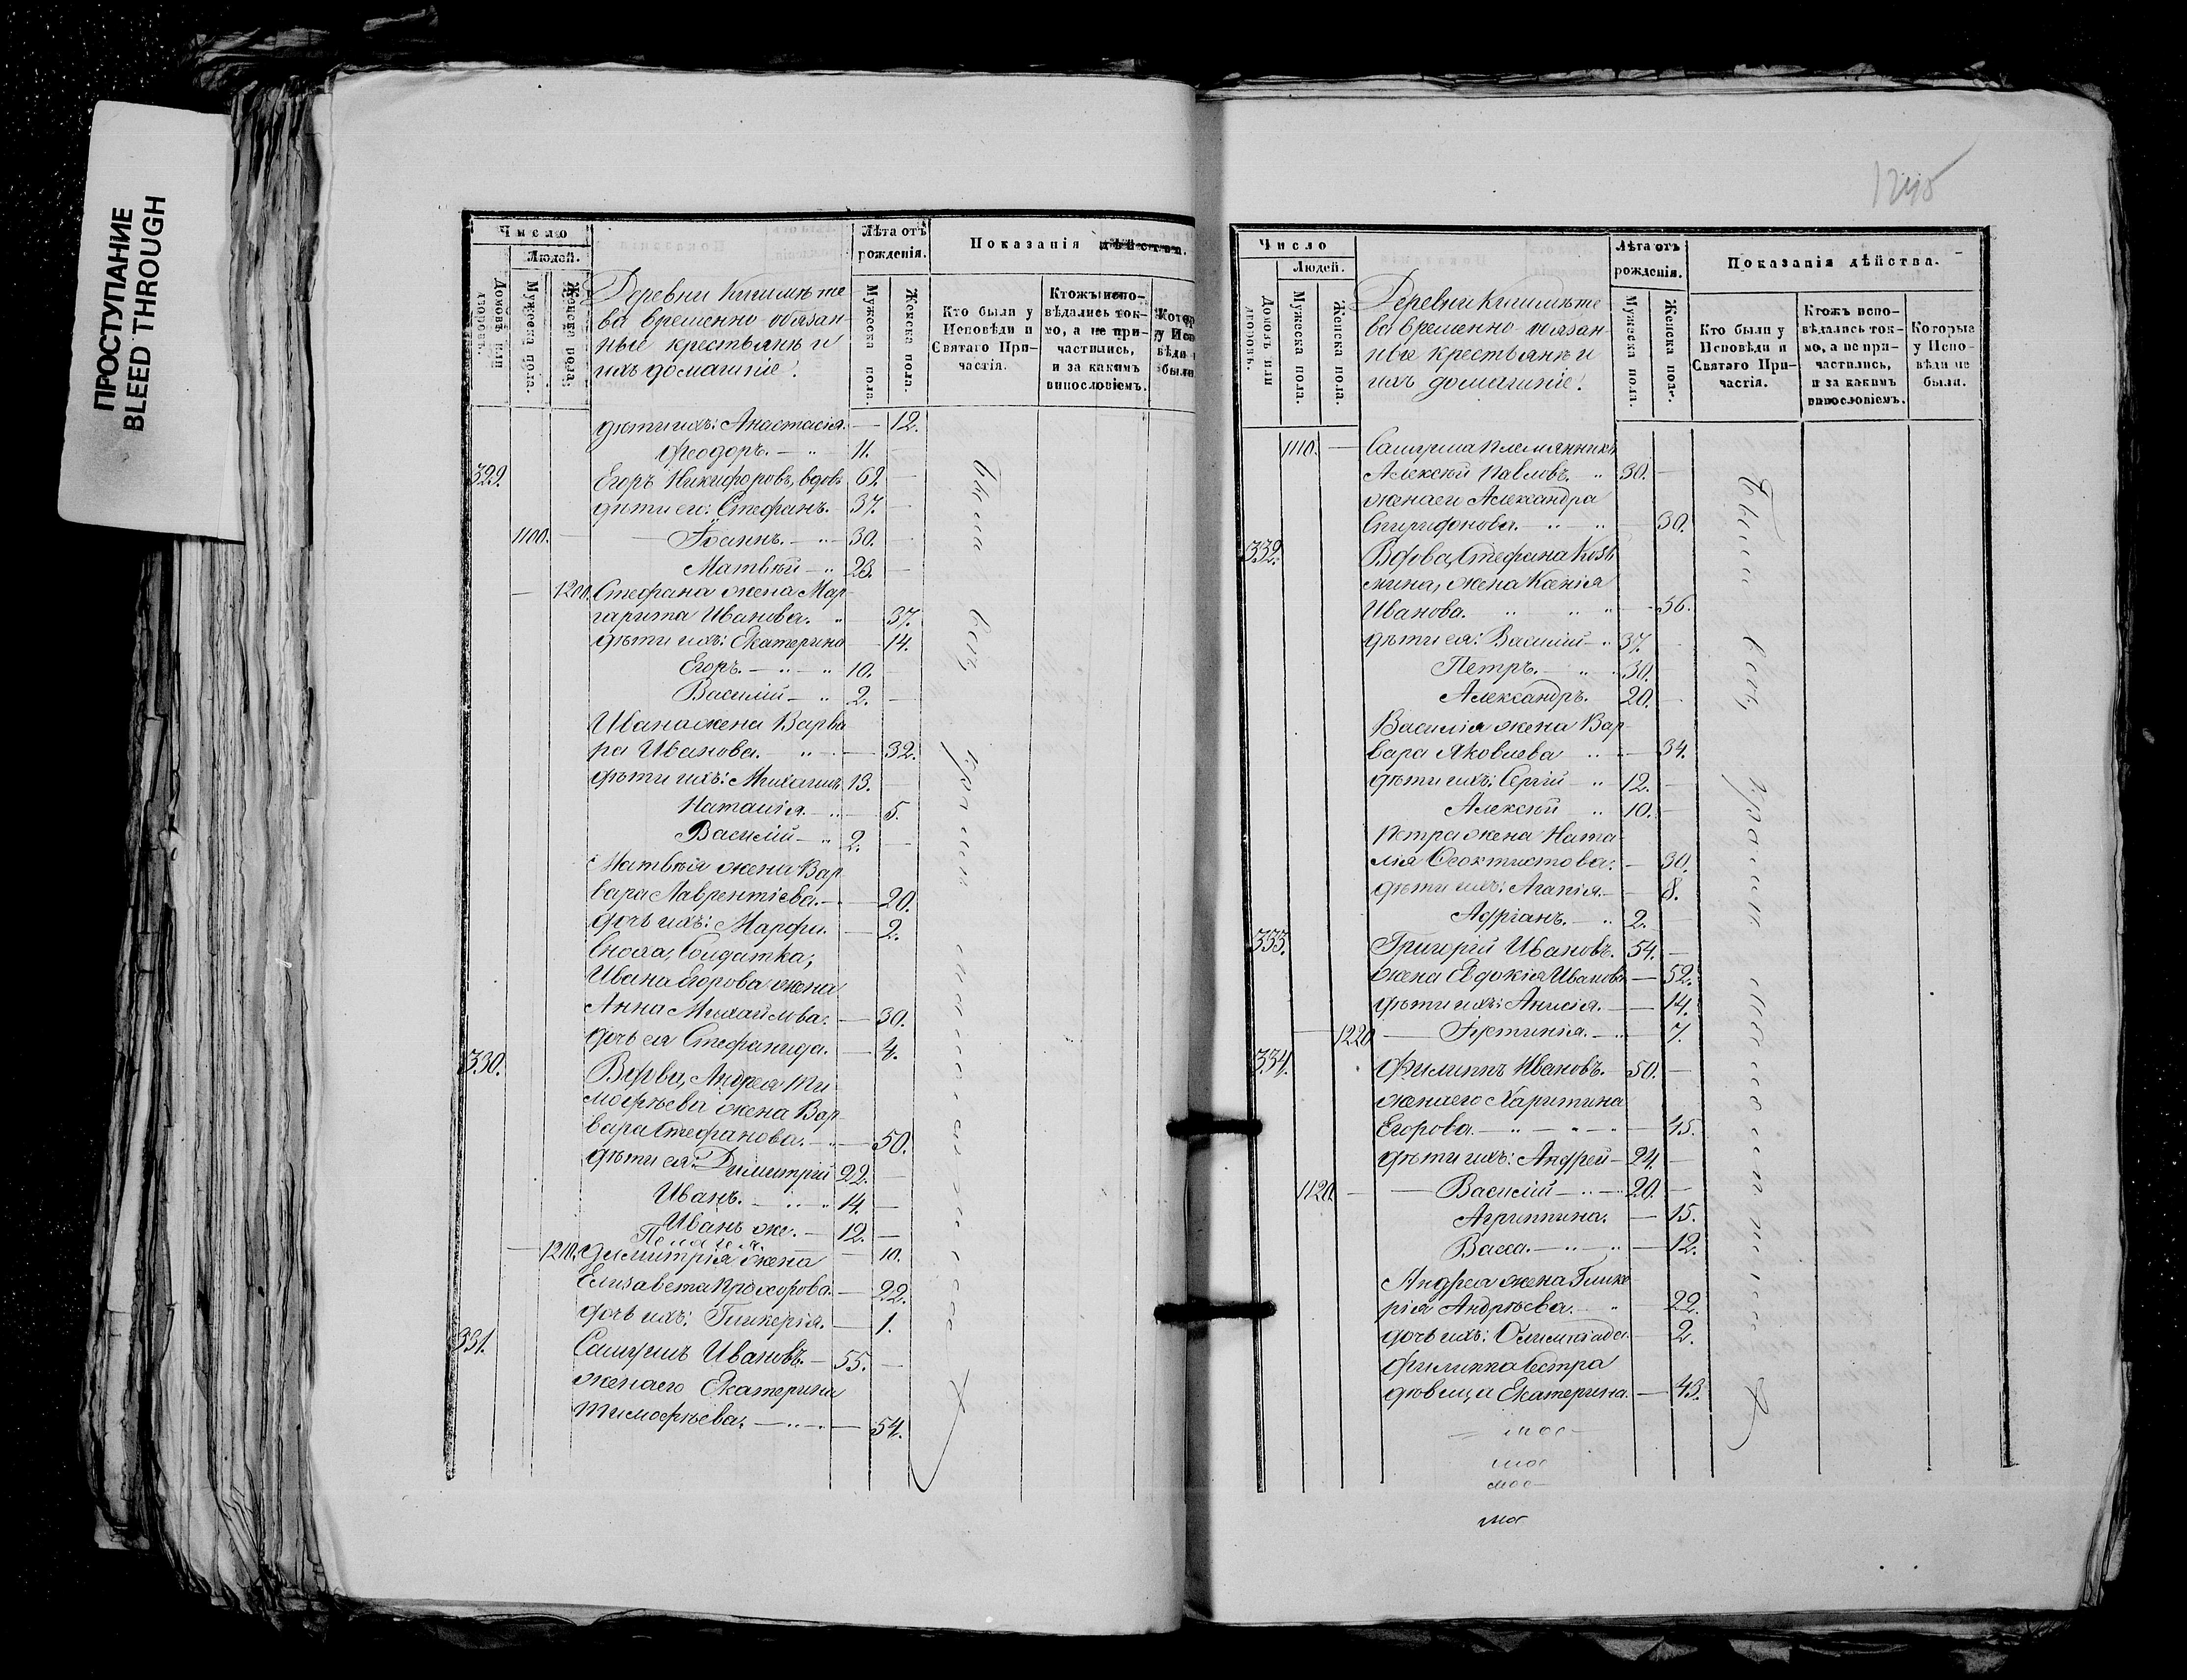 ПРОСТУПАНИЕ
BLEED THROUGH
Число
Людей.
Домовъ или дворовъ.
Мужеска пола.
Женска пола.
Деревни
ва временно обязан-
ные крестьянѣ и
ихъ домашніе.
Лѣта отъ рожденія.
Мужеска пола.
Женска пола.
Показанія дѣйства.
Кто были у Исповѣди и Святаго При-частія.
Ктожъ испо-вѣдались ток-мо, а не при-частились, и за какимъ винословіемъ.
дѣти ихъ: Анастасія. — 12.
Феодоръ. — " 11.
329. Егоръ Никифоровъ, вдовъ 62. —
дѣти его: Стефанъ. 37. —
1100. — Іоаннъ. — " — 30. —
Матвѣй — " 23. —
— 1200. Стефана жена Мар-
гарита Иванова. " — 37.
дѣти ихъ: Екатерина — 14.
Егоръ. — " — " 10. —
Василій — " 2. —
Ивана жена Варва
ра Иванова. " — 32.
дѣти ихъ: Михаилъ 13. —
Наталія. — " — 5.
Василій — " 2. —
Матвѣя жена Вар
вара Лаврентіева. — 20.
дочь ихъ: Марфа. — 2.
Сноха, Солдатка,
Ивана Егорова жена
Анна Михайлова. — 30.
дочь ея Стефанида. — 4.
330. Вдова, Андрея Ти
мофѣева жена Вар-
вара Стефанова. — " — 50.
дѣти ея: Димитрій 22. —
Иванъ. — " — " 14. —
Иванъ же. — 12. —
Пелагея. — 10.
— 1210. Димитрія жена
Елизавета Прохорова. — 22.
дочь ихъ: Гликерія. — 1.
331. Самуилъ Ивановъ. — 55. —
жена его Екатерина
Тимофѣева. — " — 54.
Были всѣ, кромѣ
1245
Число
Людей.
Домовъ или дворовъ.
Мужеска пола.
Женска пола.
Деревни
ва временно обязан-
ные крестьянѣ и
ихъ домашніе.
Лѣта отъ рожденія.
Мужеска пола.
Женска пола.
Показанія дѣйства.
Кто были у Исповѣди и Святаго При-частія.
Ктожъ испо-вѣдались ток-мо, а не при-частились, и за какимъ винословіемъ.
Которые у Испо-вѣди не были.
1110. — Самуила племянникъ
Алексѣй Павловъ. " 30. —
жена его Александра
Спиридонова. — " — " — 30.
332. Вдова, Стефана Козь
мина, жена Ксенія
Иванова. " " " — 56.
дѣти ея: Василій — " 37. —
Петръ. — " " 30. —
Александръ. 20. —
Василія жена Вар-
вара Яковлева " — 34.
дѣти ихъ: Сергій — " 12. —
Алексѣй " 10. —
Петра жена Ната-
лія Ѳеоктистова. — 30.
дѣти ихъ: Агапія. — 8.
Адріанъ. — " 2. —
333. Григорій Ивановъ. 54. —
жена Евдокія Иванова — 52.
дѣти ихъ: Анисія. — 14.
— 1220 — Іустинія. — " 7.
334. Филиппъ Ивановъ. 50. —
жена его Харитина
Егорова. — " — " — " — 45.
дѣти ихъ: Андрей — 24. —
1120. — Василій — " — 20. —
Агриппина. — 15.
Васса. — " — " — 12.
Андрея жена Глике
рія Андрѣева. — " 22.
дочь ихъ: Олимпіада. — 2.
Филиппа сестра
дѣвица Екатерина. — 43.
Были всѣ, кромѣ